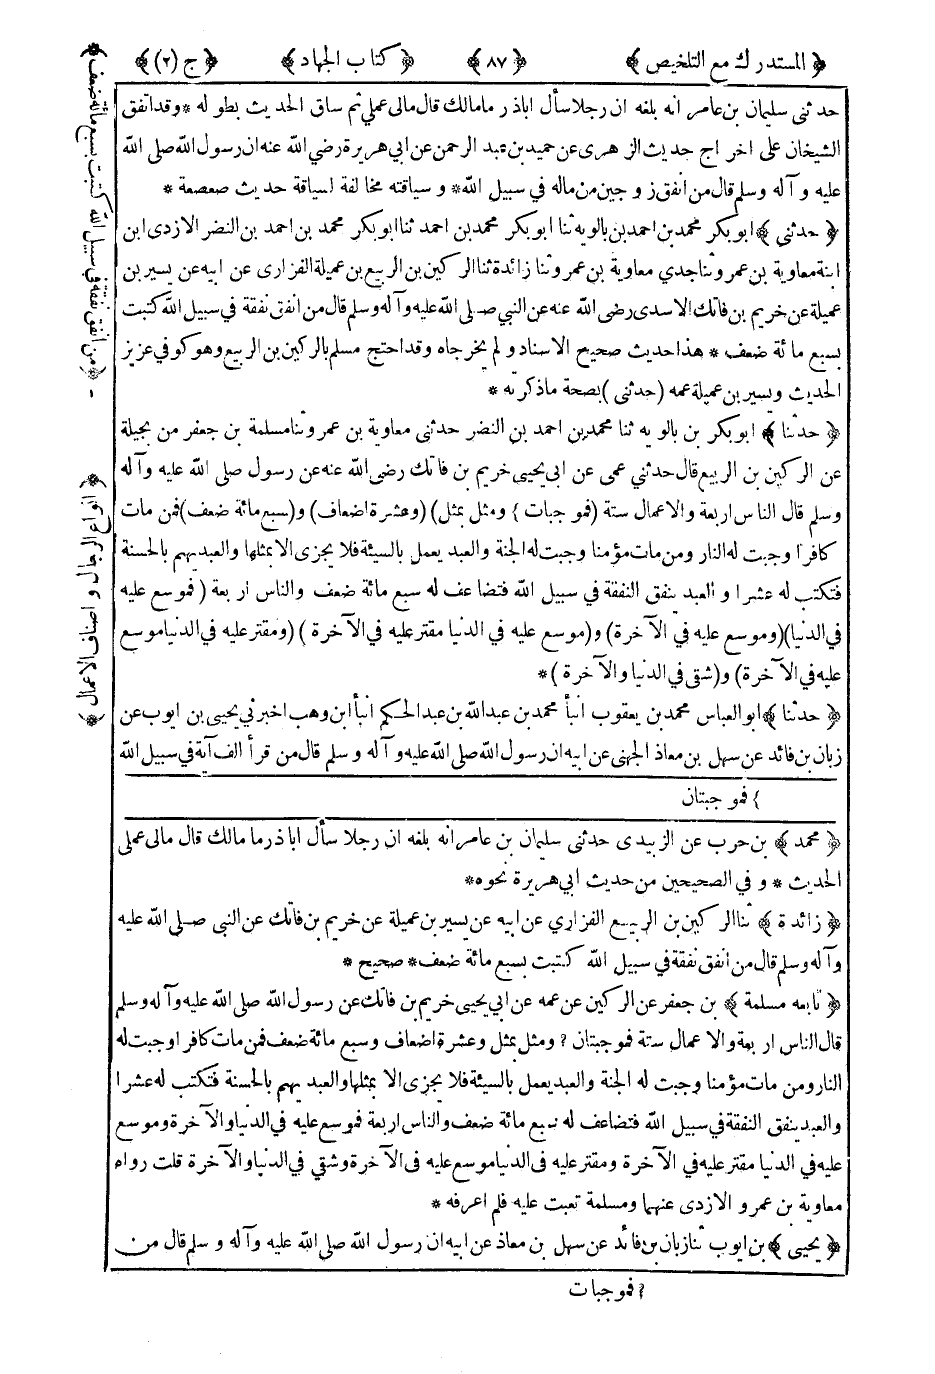 ﴿ المستدرك مع التلخيص ﴾ ﴿ ٨٧ ﴾ ﴿ كتاب الجهاد ﴾ ﴿ ج (٢) ﴾
حدثنى سليمان بن عامر انه بلغه ان رجلا سأل اباذر مامالك قال مالى عملي ثم ساق الحديث بطوله * وقد اتفق
الشيخان على اخراج حديث الزهرى عن حميد بن عبد الرحمن عن ابي هريرة رضي الله عنه ان رسول الله صلى الله
عليه وآله وسلم قال من انفق زوجين من ماله في سبيل الله * وسياقته مخالفة لسياقة حديث صعصعة *
﴿ حدثني ﴾ ابوبكر محمد بن احمد بن بالويه ثنا ابوبكر محمد بن احمد ثنا ابوبكر محمد بن احمد بن النضر الازدى ابن
ابنة معاوية بن عمر وثنا جدي معاوية بن عمر وثنا زائدة ثنا الركين بن الربيع بن عميلة الفزارى عن ابيه عن يسير بن
عميلة عن خريم بن فاتك الاسدى رضى الله عنه عن النبي صلى الله عليه وآله وسلم قال من انفق نفقة في سبيل الله كتبت
بسبع مائة ضعف * هذا حديث صحيح الاسناد ولم يخرجاه وقد احتج مسلم بالركين بن الربيع وهو كوفي عزيز
الحديث ويسير بن عميلة عمه (حدثنى) بصحة ماذكرته *
﴿ حدثنا ﴾ ابوبكر بن بالويه ثنا محمد بن احمد بن النضر حدثنى معاوية بن عمر وثنا مسلمة بن جعفر من بجيلة
عن الركين بن الربيع قال حدثني عمى عن ابى يحيى خريم بن فاتك رضى الله عنه عن رسول صلى الله عليه وآله
وسلم قال الناس اربعة والاعمال ستة (فموجبات } ومثل بمثل) (وعشرة اضعاف) و(سبع مائة ضعف) فمن مات
كافرا وجبت له النار ومن مات مؤمنا وجبت له الجنة والعبد يعمل بالسيئة فلا يجزى الا بمثلها والعبد يهم بالحسنة
فتكتب له عشرا و العبد ينفق النفقة في سبيل الله فتضاعف له سبع مائة ضعف والناس اربعة (فموسع عليه
في الدنيا)(وموسع عليه في الآخرة) و(موسع عليه في الدنيا مقتر عليه في الآخرة) (ومقتر عليه في الدنيا موسع
عليه في الآخرة) و(شقى في الدنيا والآخرة) *
﴿ حدثنا ﴾ ابوالعباس محمد بن يعقوب انبأ محمد بن عبدالله بن عبدالحكم انبأ ابن وهب اخبرني يحيى بن ايوب عن
زبان بن فائد عن سهل بن معاذ الجهنى عن ابيه ان رسول الله صلى الله عليه وآله وسلم قال من قرأ الف آية في سبيل الله
} فموجبتان
﴿ محمد ﴾ بن حرب عن الزبيدى حدثنى سليمان بن عامر انه بلغه ان رجلا سأل اباذر ما مالك قال مالى عملى
الحديث * وفي الصحيحين من حديث ابي هريرة نحوه *
﴿ زائدة ﴾ ثنا الركين بن الربيع الفزاري عن ابيه عن يسير بن عميلة عن خريم بن فاتك عن النبى صلى الله عليه
وآله وسلم قال من انفق نفقة في سبيل الله كتبت بسبع مائة ضعف * صحيح *
﴿ تابعه مسلمة ﴾ بن جعفر عن الركين عن عمه عن ابي يحيى خريم بن فاتك عن رسول الله صلى الله عليه وآله وسلم
قال الناس اربعة والاعمال ستة فموجبتان ? ومثل بمثل وعشرة اضعاف وسبع مائة ضعف فمن مات كافرا وجبت له
النار ومن مات مؤمنا وجبت له الجنة والعبد يعمل بالسيئة فلا يجزى الا بمثلها والعبد يهم بالحسنة فتكتب له عشرا
والعبد ينفق النفقة في سبيل الله فتضاعف له سبع مائة ضعف والناس اربعة فموسع عليه في الدنيا والآخرة وموسع
عليه في الدنيا مقتر عليه في الآخرة ومقتر عليه فى الدنيا موسع عليه فى الآخرة وشقي في الدنيا والآخرة قلت رواه
معاوية بن عمرو الازدى عنهما ومسلمة تعبت عليه فلم اعرفه *
﴿ يحيى ﴾ بن ايوب ثنا زبان بن فائد عن سهل بن معاذ عن ابيه ان رسول الله صلى الله عليه وآله وسلم قال من
? فموجبات
﴿ من أنفق نفقة في سبيل الله كتبت بسبع مائة ضعف ﴾